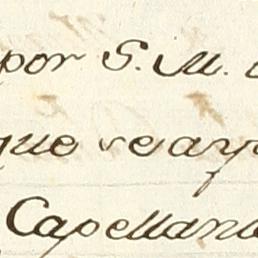 por S. M.
que se
Capellan